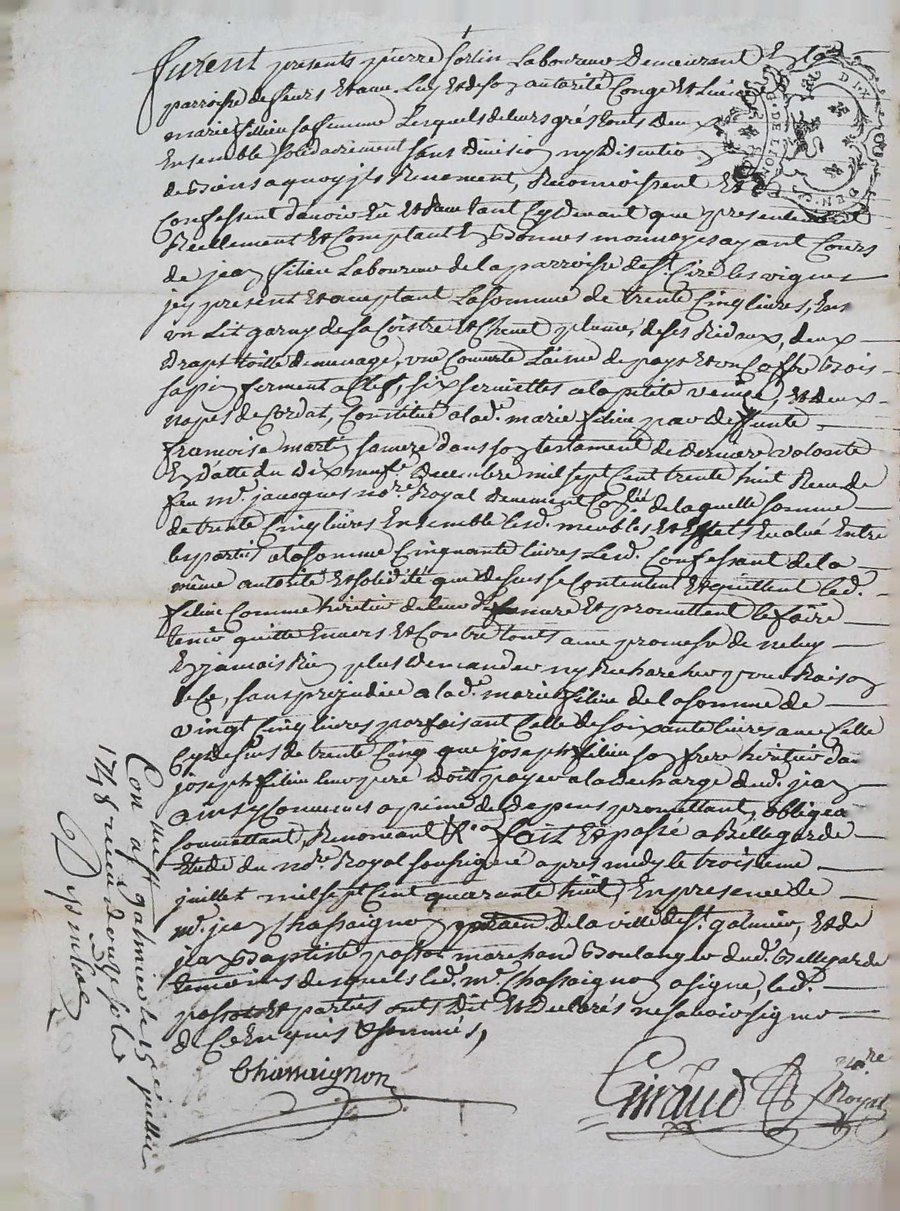 furent presents pierre sorlin Laboureur Demeurant En la
parroisse de feurs Et avec Luy Et de son autorité Congé Et Licence
marie filieu sa femme Lesquels de leurs grés touts Deux
Ensemble solidairement sans Division ny Discution
de Biens a quoy jls Renoncent, Reconnoissent Et
Confessent d'avoir Eü Et Receu tant Cydevant que presentement
Réellement Et Comptant En Bonnes monnoyes ayant Cours
de jean filieu Laboureur de la parroisse de st. Cire les vignes
jcy present Et acceptant La somme de trente Cinq livres, Les
un Lit garny de sa Coistre Et Chevet plume, de ses Rideaux, deux
Draps toille de menage, une Couverte Laine de pays Et un Coffre Bois
sapin fermant a Clef, six serviettes a la petite venise, Et deux
napes de Cordat, Constitué a lad. marie filieu par deffunte
francoise martin sa mere dans son testament de Derniere volonté
En datte du Dix neufe. Decembre mil sept Cent trente huit Receu de
feu me. jacques nore. Royal Deuement Con.lé de laquelle somme
de trente Cinq livres Ensemble lesd. meubles Et Effets Evalué Entre
les parties a la somme Cinquante livres Lesd. Confessant de la
même autorité Et solidité que dessus se Contentent Et quittent led.
filieu Comme heritier de lad. sa mere Et promettent le faire
tenir quitte Envers Et Contre touts avec promesse de ne luy
En jamais Rien plus Demander ny Rechercher pour Raison
de Ce, sans prejudice a lade. marie filieu de la somme de
vingt Cinq livres parfaisant Celle de soixante livres avec Celle
Cy dessus de trente Cinq que joseph filieu son frere heritier da
joseph filieu leur pere Doit payer a la decharge dud. jean
ainsy Convenus a peine de Depens promettant, obligeant
soumettant, Renoncant &ca fait Et passé a Bellegarde
Etude du nore. Royal soussigné apres midy le troisieme
juillet mil sept Cent quarante huit, En presence de
me. jean Chassaignon de la ville de st. galmier, Et de
jean Baptiste passot marchand Boulanger dud. Bellegarde
temoins desquels led. me. Chassaignon a signé, led.
passot Et parties onts Dit Et Declarés ne savoir signer
de Ce Enquis & sommés,
Chassaignon
Giraud nore Royal
Con. a st galmier le 15e juillet
1748 receu douze sols
DIX DEN.
G. DE LION